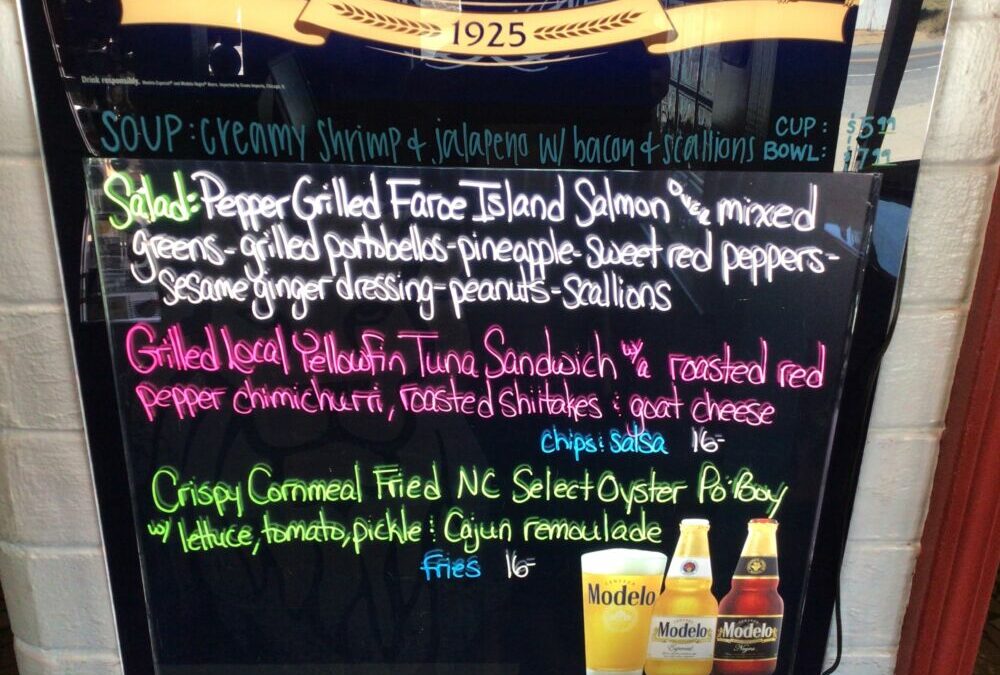 1925
Drink responsibly.
SOUP: creamy shrimp & jalapeno w/ bacon & scallions
CUP: $5.99
BOWL: $7.99
Salad: Pepper Grilled Faroe Island Salmon over mixed
greens - grilled portobellos - pineapple - sweet red peppers -
sesame ginger dressing - peanuts - scallions
Grilled Local Yellowfin Tuna Sandwich w/a roasted red
pepper chimichurri, roasted shiitakes & goat cheese
chips & salsa 16-
Crispy Cornmeal Fried NC Select Oyster Po'Boy
w/ lettuce, tomato, pickle & Cajun remoulade
Fries 16-
Modelo
Modelo
Especial
Modelo
Negra